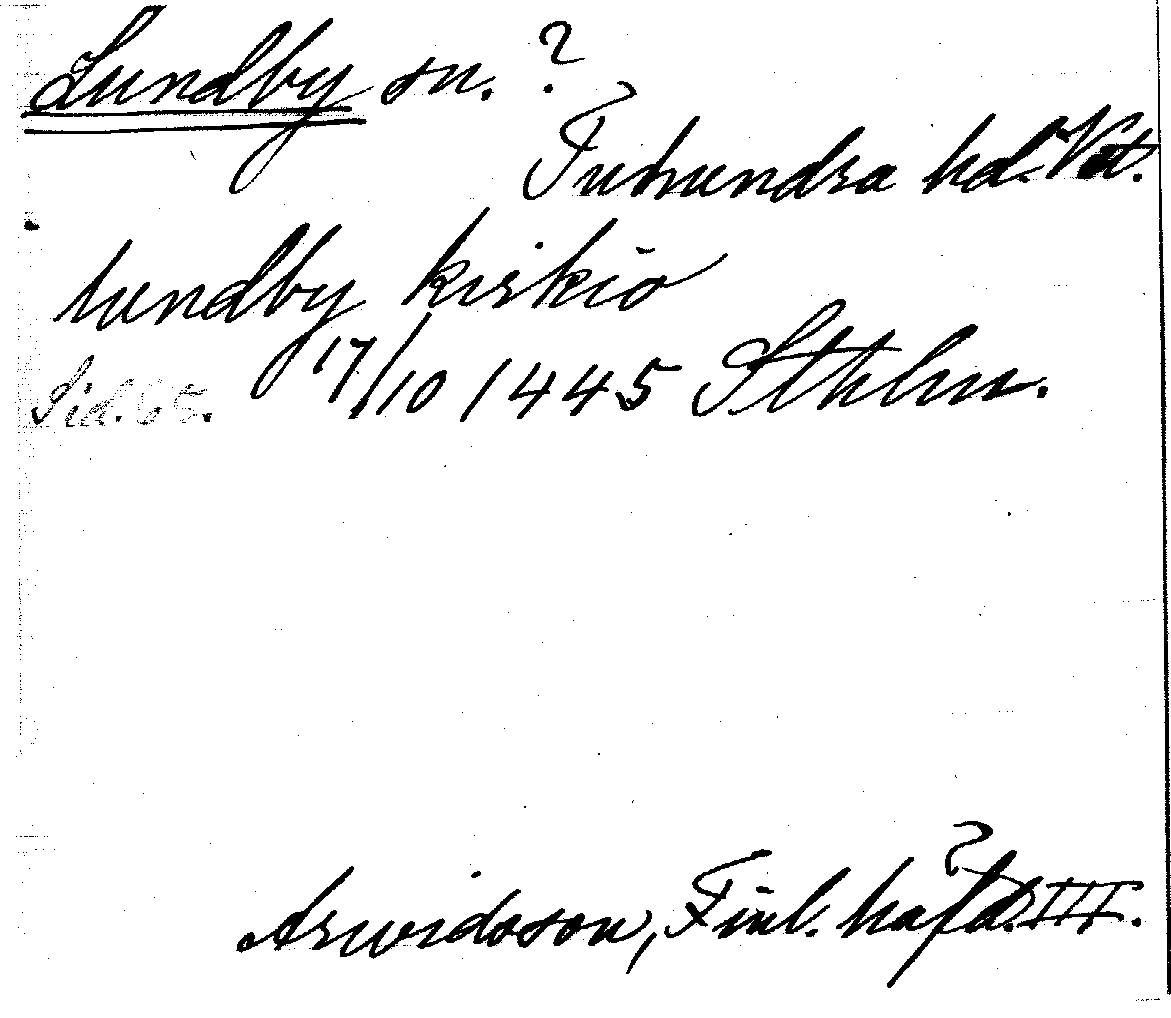 Lundby sn. ?
Tuhundra hd. Vstm.
lundby kirkio
Sid. 65. 17/10 1445 Sthlm.
Arwidsson, Finl. häfd. III.